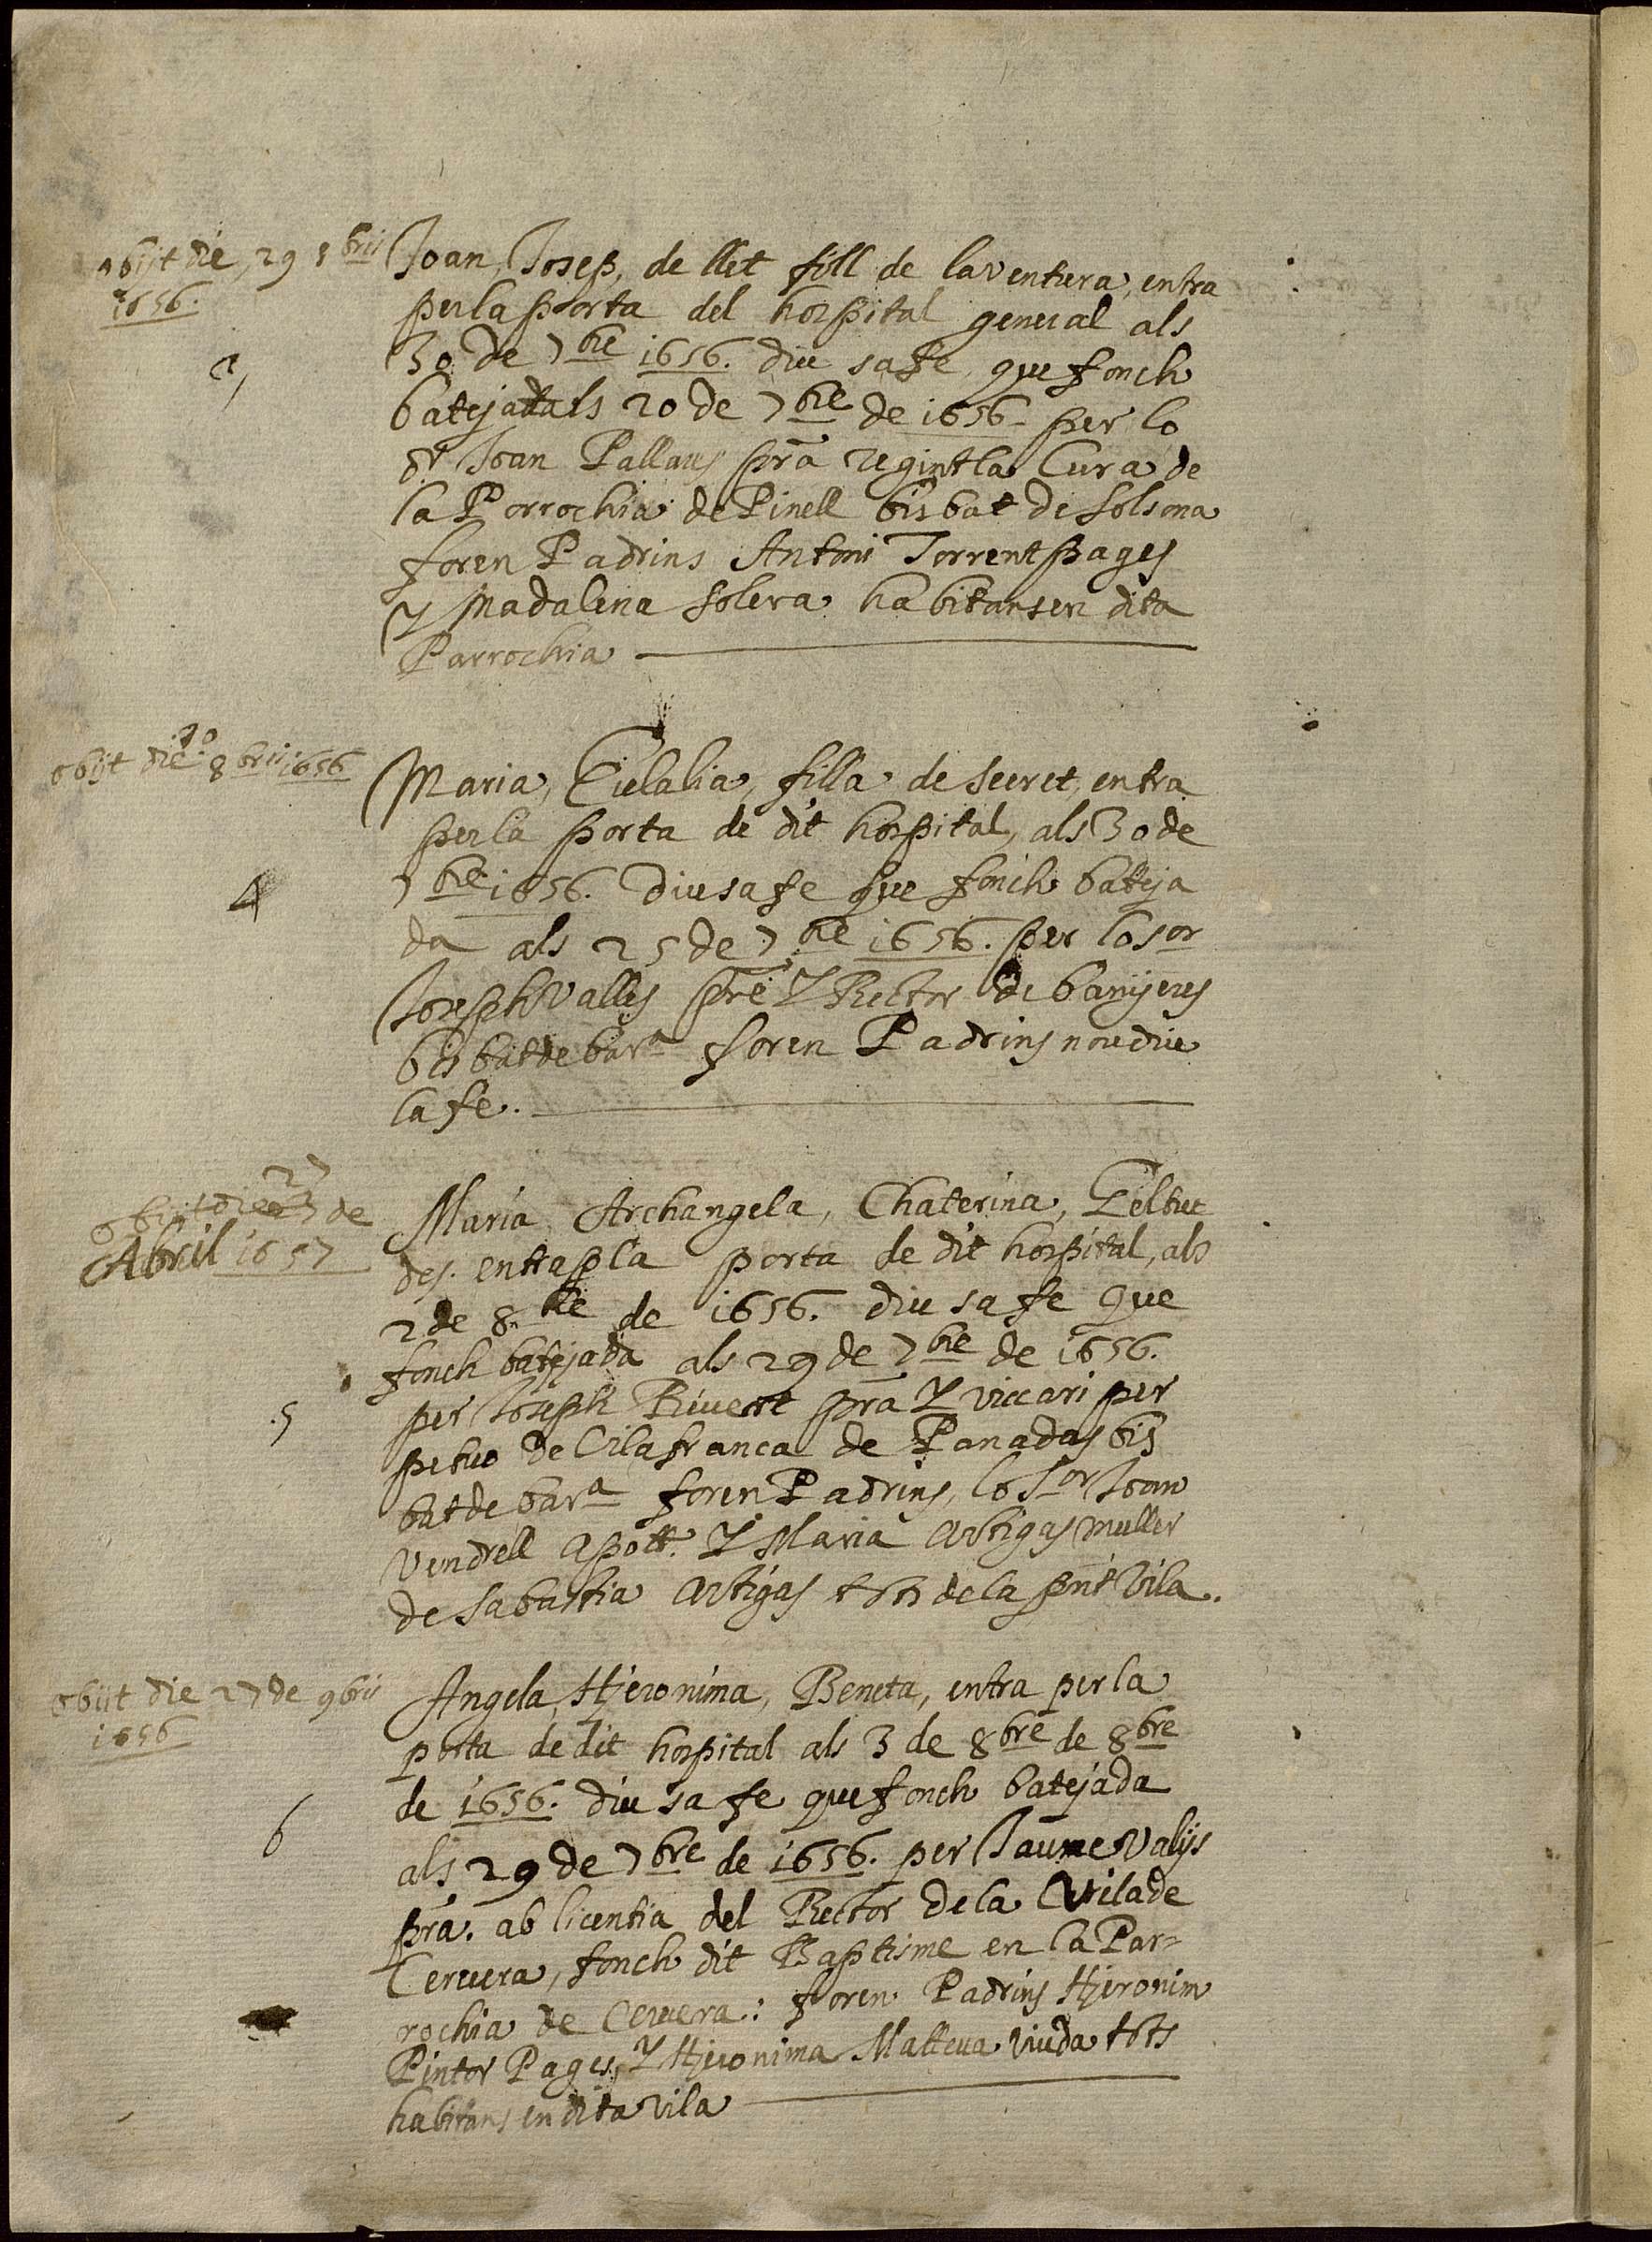 obijt die, 29 8bris
1656.
3
Joan, Josep, de llet fill de la ventura, entra
per la porta del hospital general als
30 de 7bre 1656. diu sa fe que fonch
batejat als 20 de 7bre de 1656 per lo
Sr Joan Pallares pra regint la Cura de
la Porrochia de Pinell bisbat de Solsona
foren Padrins Antoni Torrent pages
Y Madalena Solera habitans en dita
Parrochia
10
obijt die 8bris 1656
4
Maria, Eulalia, filla de secret, entra
per la porta de dit hospital, als 30 de
7bre 1656. Diu sa fe que fonch bateja
da als 25 de 7bre 1656. per lo sor
Joseph Valles pre Y Rector de banyeres
bisbat de bara foren Padrins nou diu
la fe.
27
obijt die de
Abril 1657
5
Maria Archangela, Chaterina, Geltru
des. entra p la porta de dit hospital, als
2 de 8.bre de 1656. diu sa fe que
fonch batejada als 29 de 7bre de 1656.
per Joseph Rivert pra Y viccari per
petuo de Vilafranca de Panadas bis
bat de bara foren Padrins, lo Sor Joan
Vendrell apott. Y Maria Artigas muller
de Sabastia Artigas tots de la pnt Vila.
obijt die 27 de 9bris
1656
6
Angela, Hjeronima, Beneta, entra per la
porta de dit hospital als 3 de 8bre de 8bre
de 1656. diu sa fe que fonch batejada
als 29 de 7bre de 1656. per Jaume Valjs
pra. ab licentia del Rector de la Vila de
Cervera, fonch dit Baptisme en la Par=
rochia de Cervera: foren Padrins Hjeronim
Pintor Pages, Y Hjeronima Matteua viuda tots
habitans en dita vila